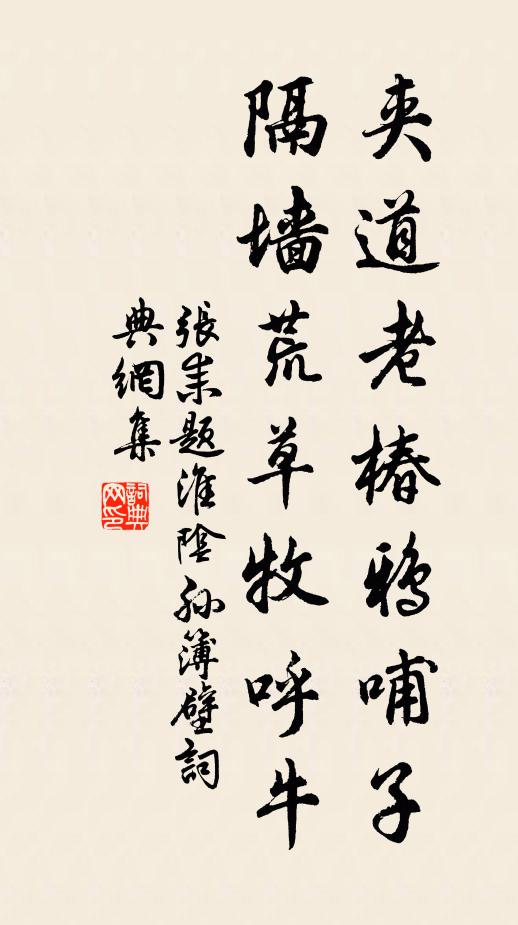 夹道老椿鸦哺子
隔墙荒草牧呼牛
張耒題淮陰孙簿壁詞
典網集
詞典网印